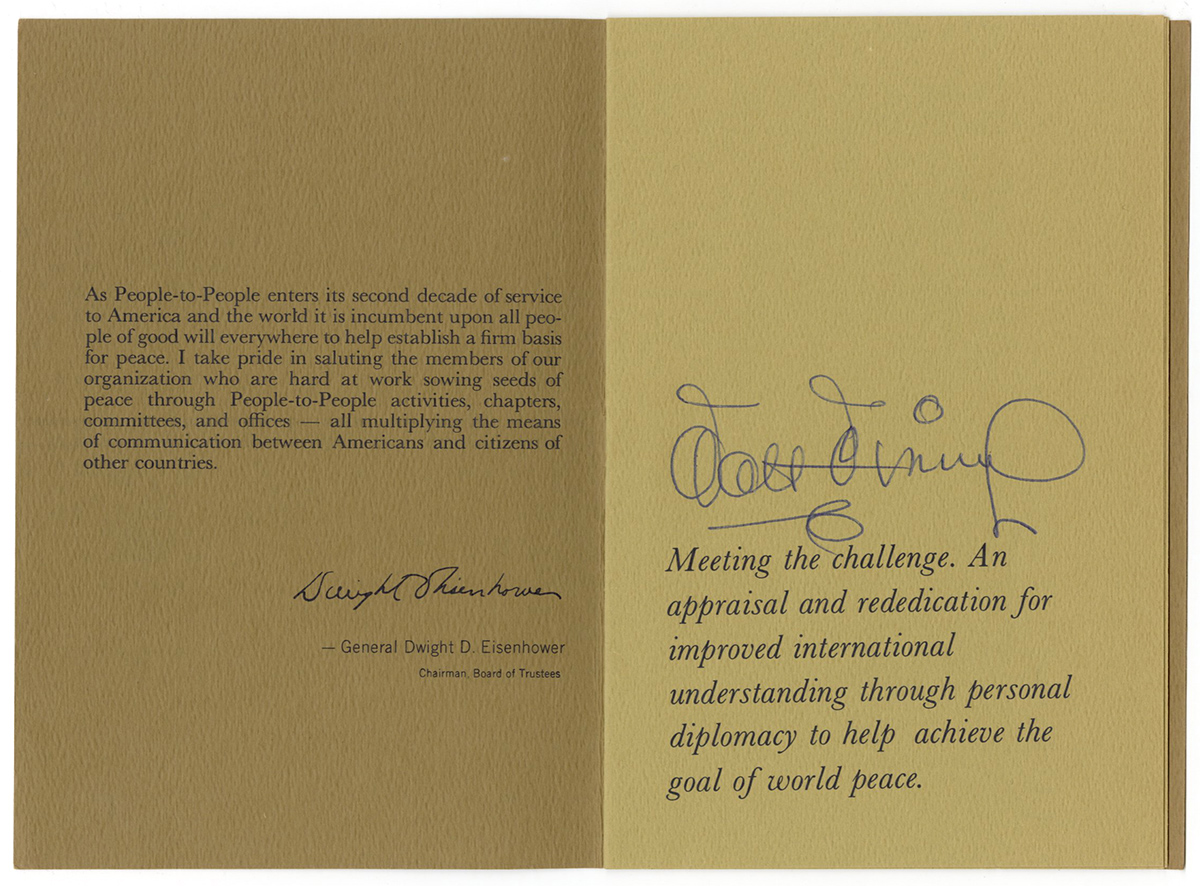 As People-to-People enters its second decade of service
to America and the world it is incumbent upon all peo-
ple of good will everywhere to help establish a firm basis
for peace. I take pride in saluting the members of our
organization who are hard at work sowing seeds of
peace through People-to-People activities, chapters,
committees, and offices — all multiplying the means
of communication between Americans and citizens of
other countries.
Dwight D Eisenhower
— General Dwight D. Eisenhower
Chairman, Board of Trustees
Walt Disney
Meeting the challenge. An
appraisal and rededication for
improved international
understanding through personal
diplomacy to help achieve the
goal of world peace.